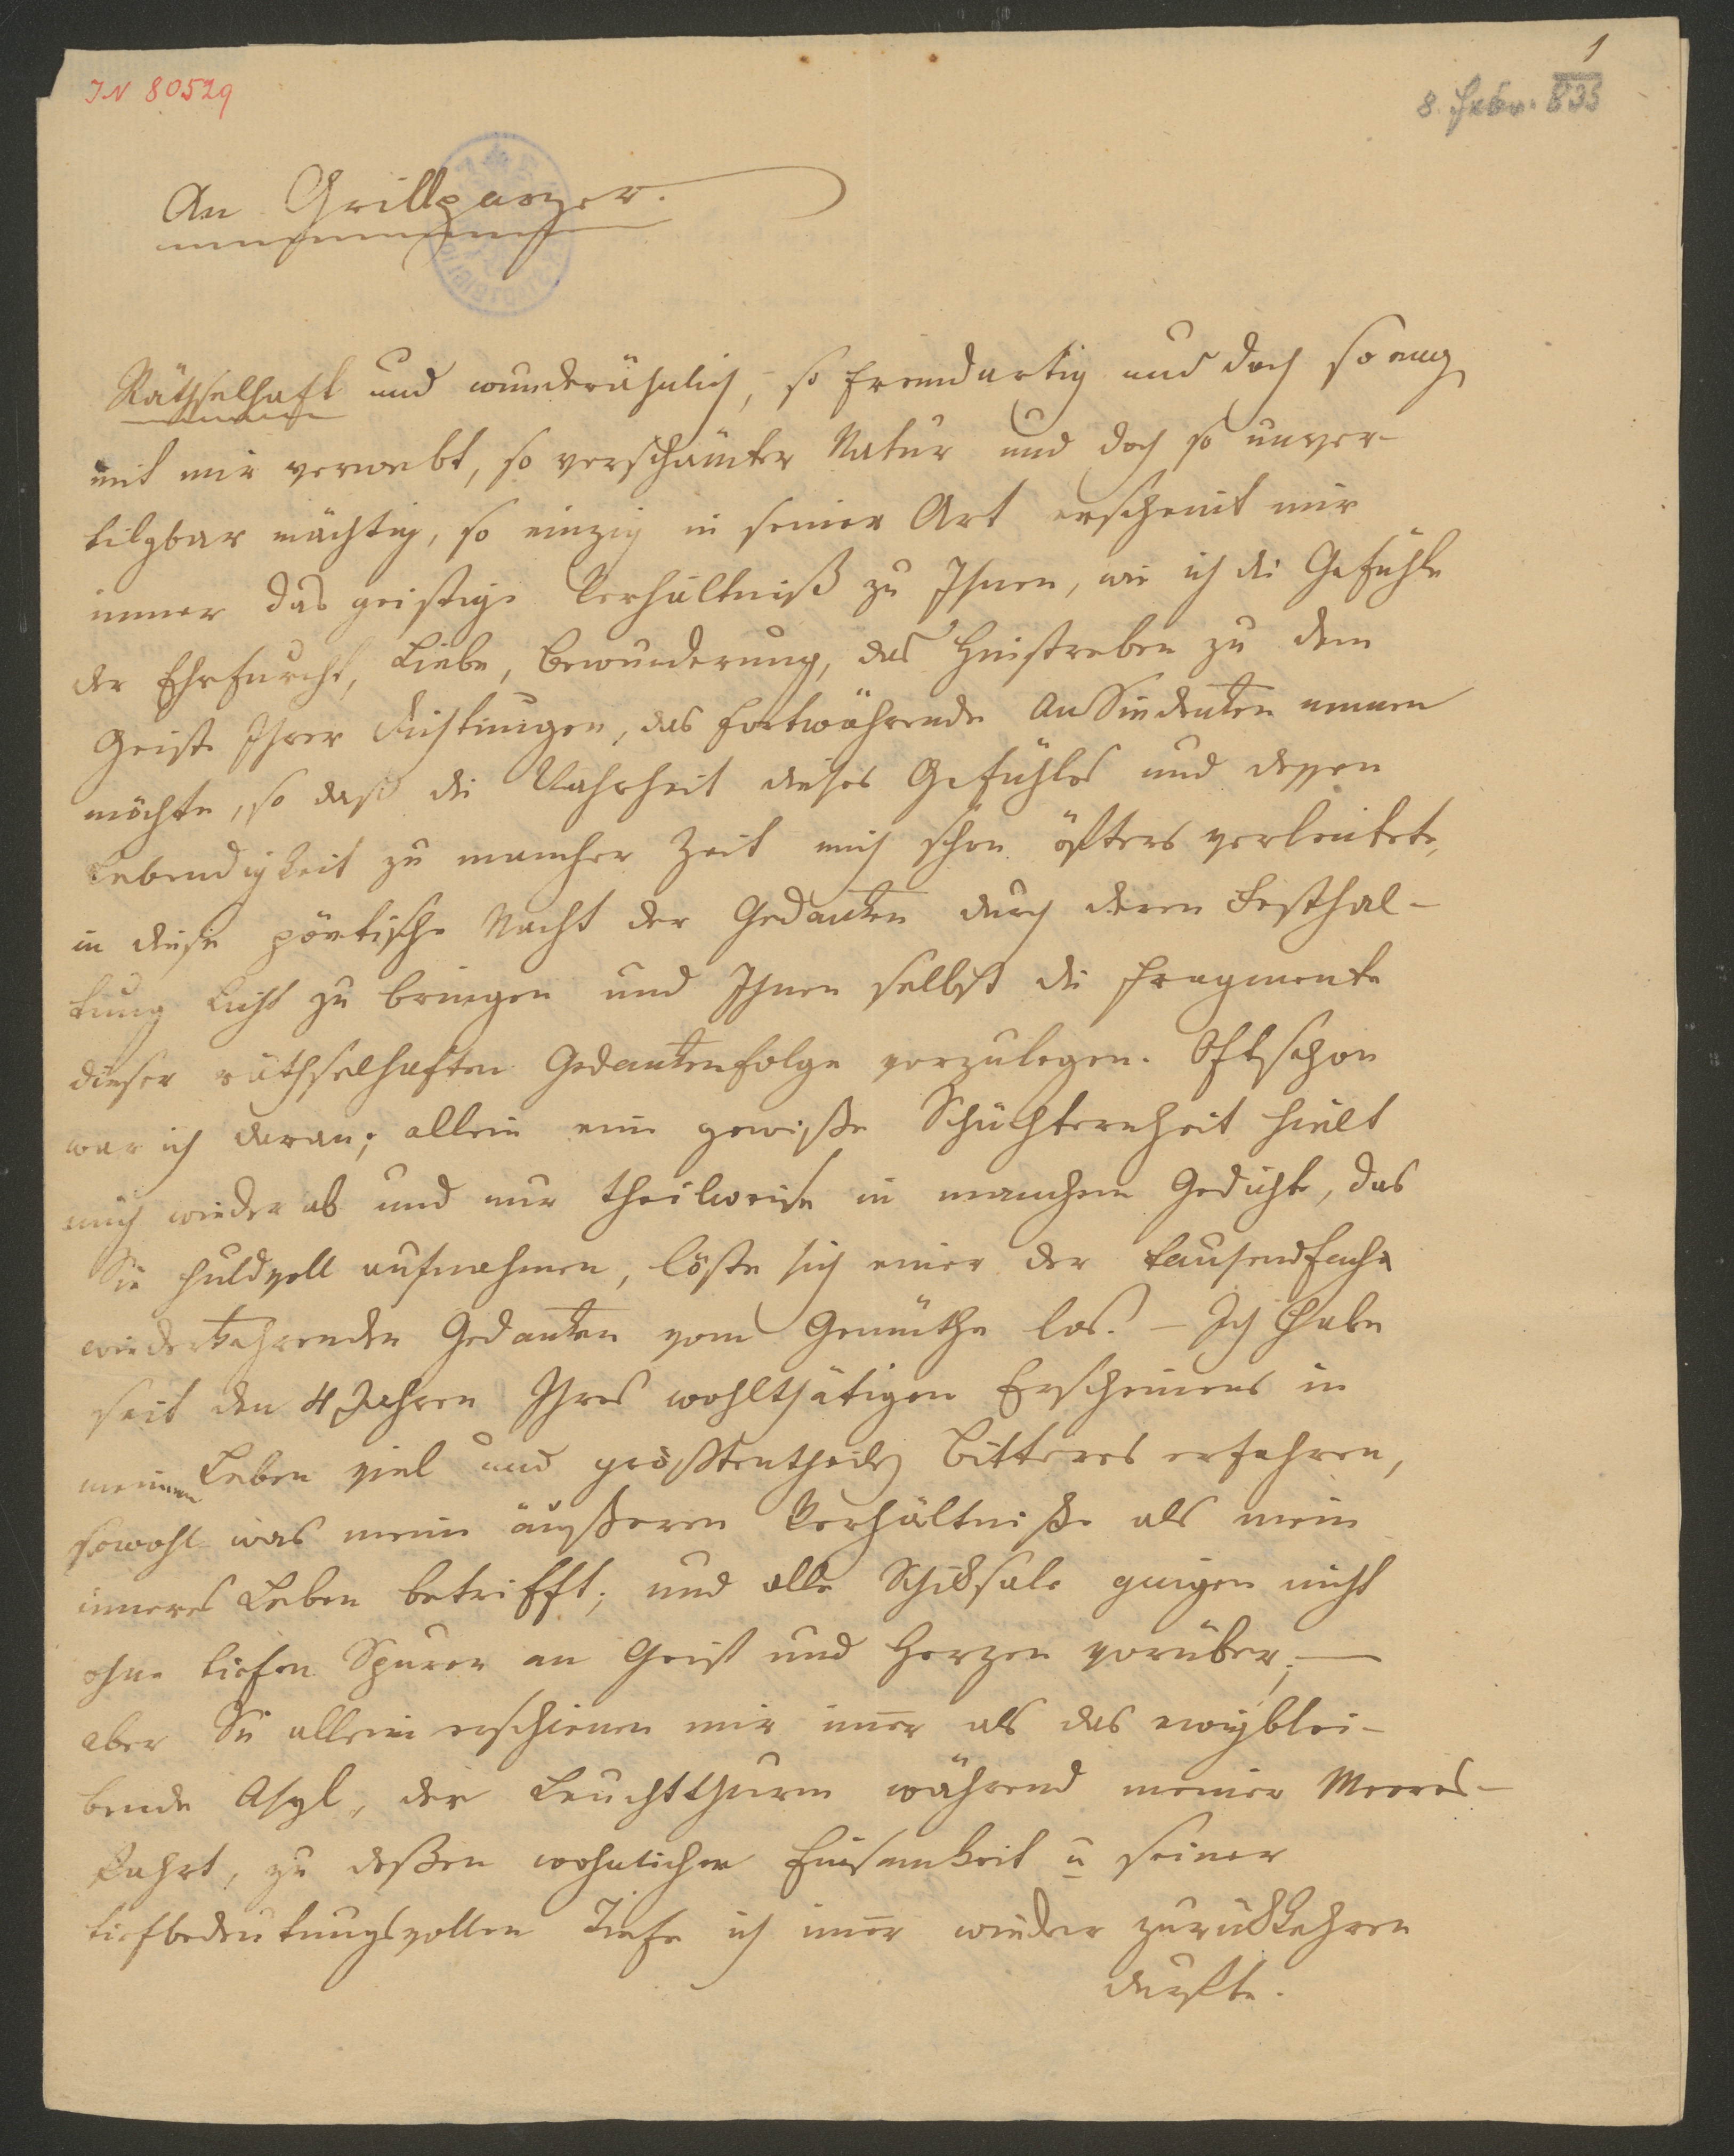 IN 80529
1
8. Febr. 835
An Grillparzer.
Räthselhaft und wunderähnlich, so fremdartig und doch so eng
mit mir verwebt, so verschämter Natur und doch so unver-
tilgbar mächtig, so einzig in seiner Art erscheint mir
immer das geistige Verhältniß zu Ihnen, wie ich die Gefühle
der Ehrfurcht, Liebe, Bewunderung, das Hinstreben zu dem
Geiste Ihrer Leistungen, das fortwährende AnSiedenken nennen
möchte, so daß die Wahrheit dieses Gefühles und dessen
Lebendigkeit zu mancher Zeit mich schon öfters verleitete,
in diese pöetische Nacht der Gedanken durch deren Festhal-
tung Licht zu bringen und Ihnen selbst die Fragmente
dieser räthselhaften Gedankenfolge vorzulegen. Oft schon
war ich daran; allein eine gewiße Schüchternheit hielt
mich wieder ab und nur theilweise in manchem Gedichte, das
Sie huldvoll aufnahmen, löste sich einer der tausendfach
wiederkehrenden Gedanken vom Gemüthe los. – Ich habe
seit den 4 Jahren Ihres wohlthätigen Erscheinens in
meinem Leben viel und größtentheils Bitteres erfahren,
sowohl was meine äußeren Verhältniße als mein
inneres Leben betrifft; und alle Schiksale gingen nicht
ohne tiefen Spuren an Geist und Herzen vorüber; —
aber Sie allein erschienen mir im̅er als das ewigblei-
bende Asyl, der Leuchtthurm während meiner Meeres-
fahrt, zu deßen wohnlicher Einsamkeit u seiner
tiefbedeutungsvollen Tiefe ich im̅er wieder zurükkehren
durfte.